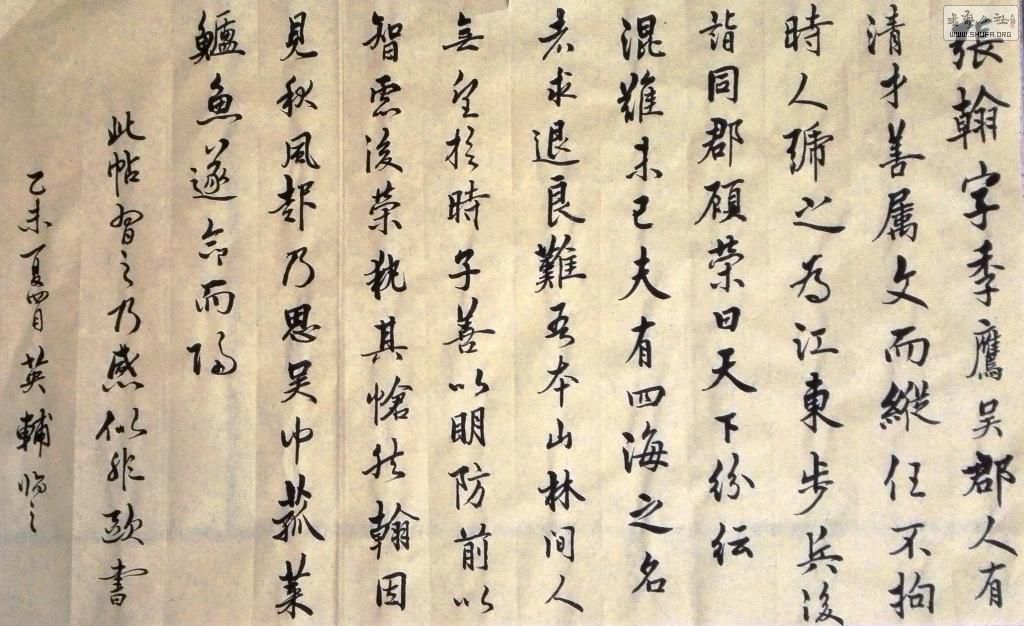 張翰字季鷹吴郡人有
清才善属文而縱任不拘
時人號之為江東步兵後
詣同郡顧榮曰天下紛紜
混難未已夫有四海之名
者求退良難吾本山林間人
無望於時子善以明防前以
智慮後榮執其愴然翰因
見秋風起乃思吴中菰菜
鱸魚遂命而歸
此帖習之乃感似非欧書
乙未夏四月英輔临之
書法公社
WWW.SHUFA.ORG